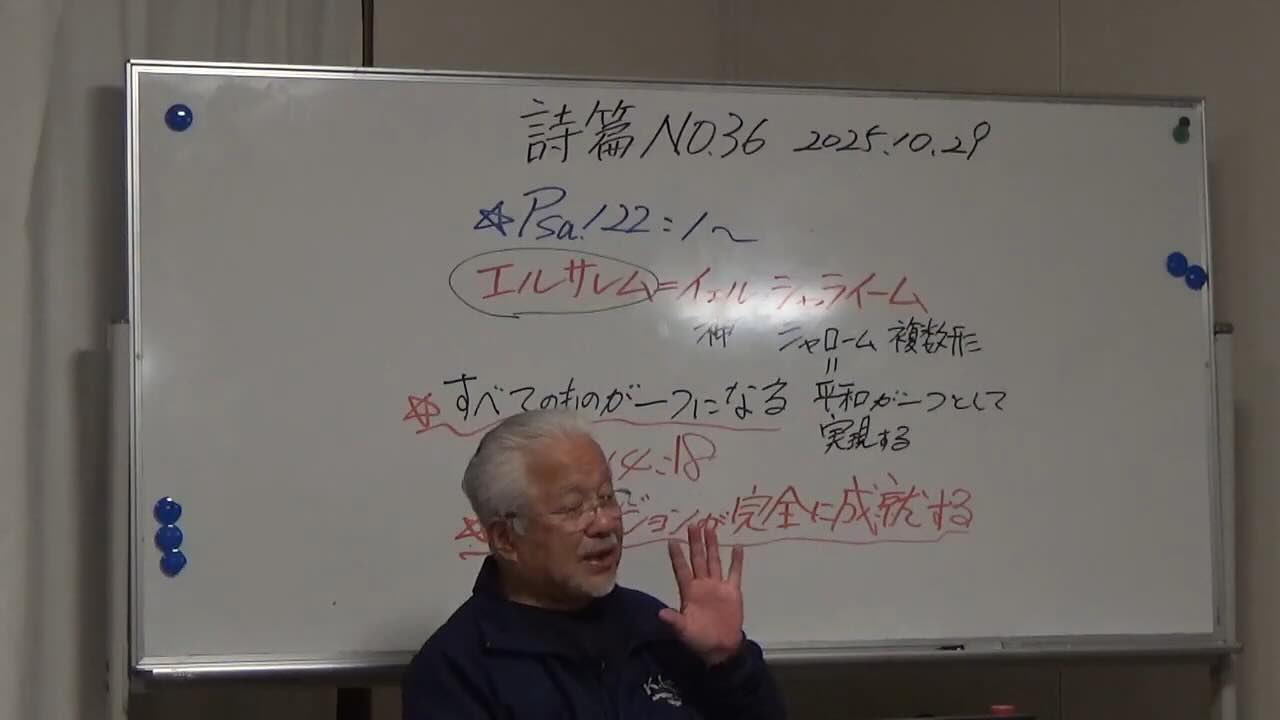 詩篇 NO.36 2025.10.29
☆Psa.122:1〜
エルサレム=イェル シャライーム
神 シャローム 複数形
=
☆すべてのものが一つになる 平和が一つとして
実現する
4:18
☆ ジョンが完全に成就する